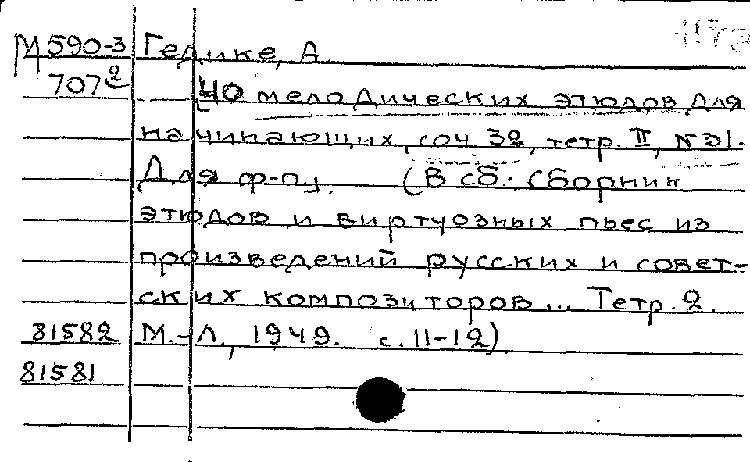 М590-3 Гедике, А
707² [40 мелодических этюдов для
начинающих, соч 32, тетр. II, №31.
Для ф-п]. (В сб. Сборник
этюдов и виртуозных пьес из
произведений русских и совет-
ских композиторов... Тетр. 2.
81582 М.-Л, 1949. с. 11-12)
81581